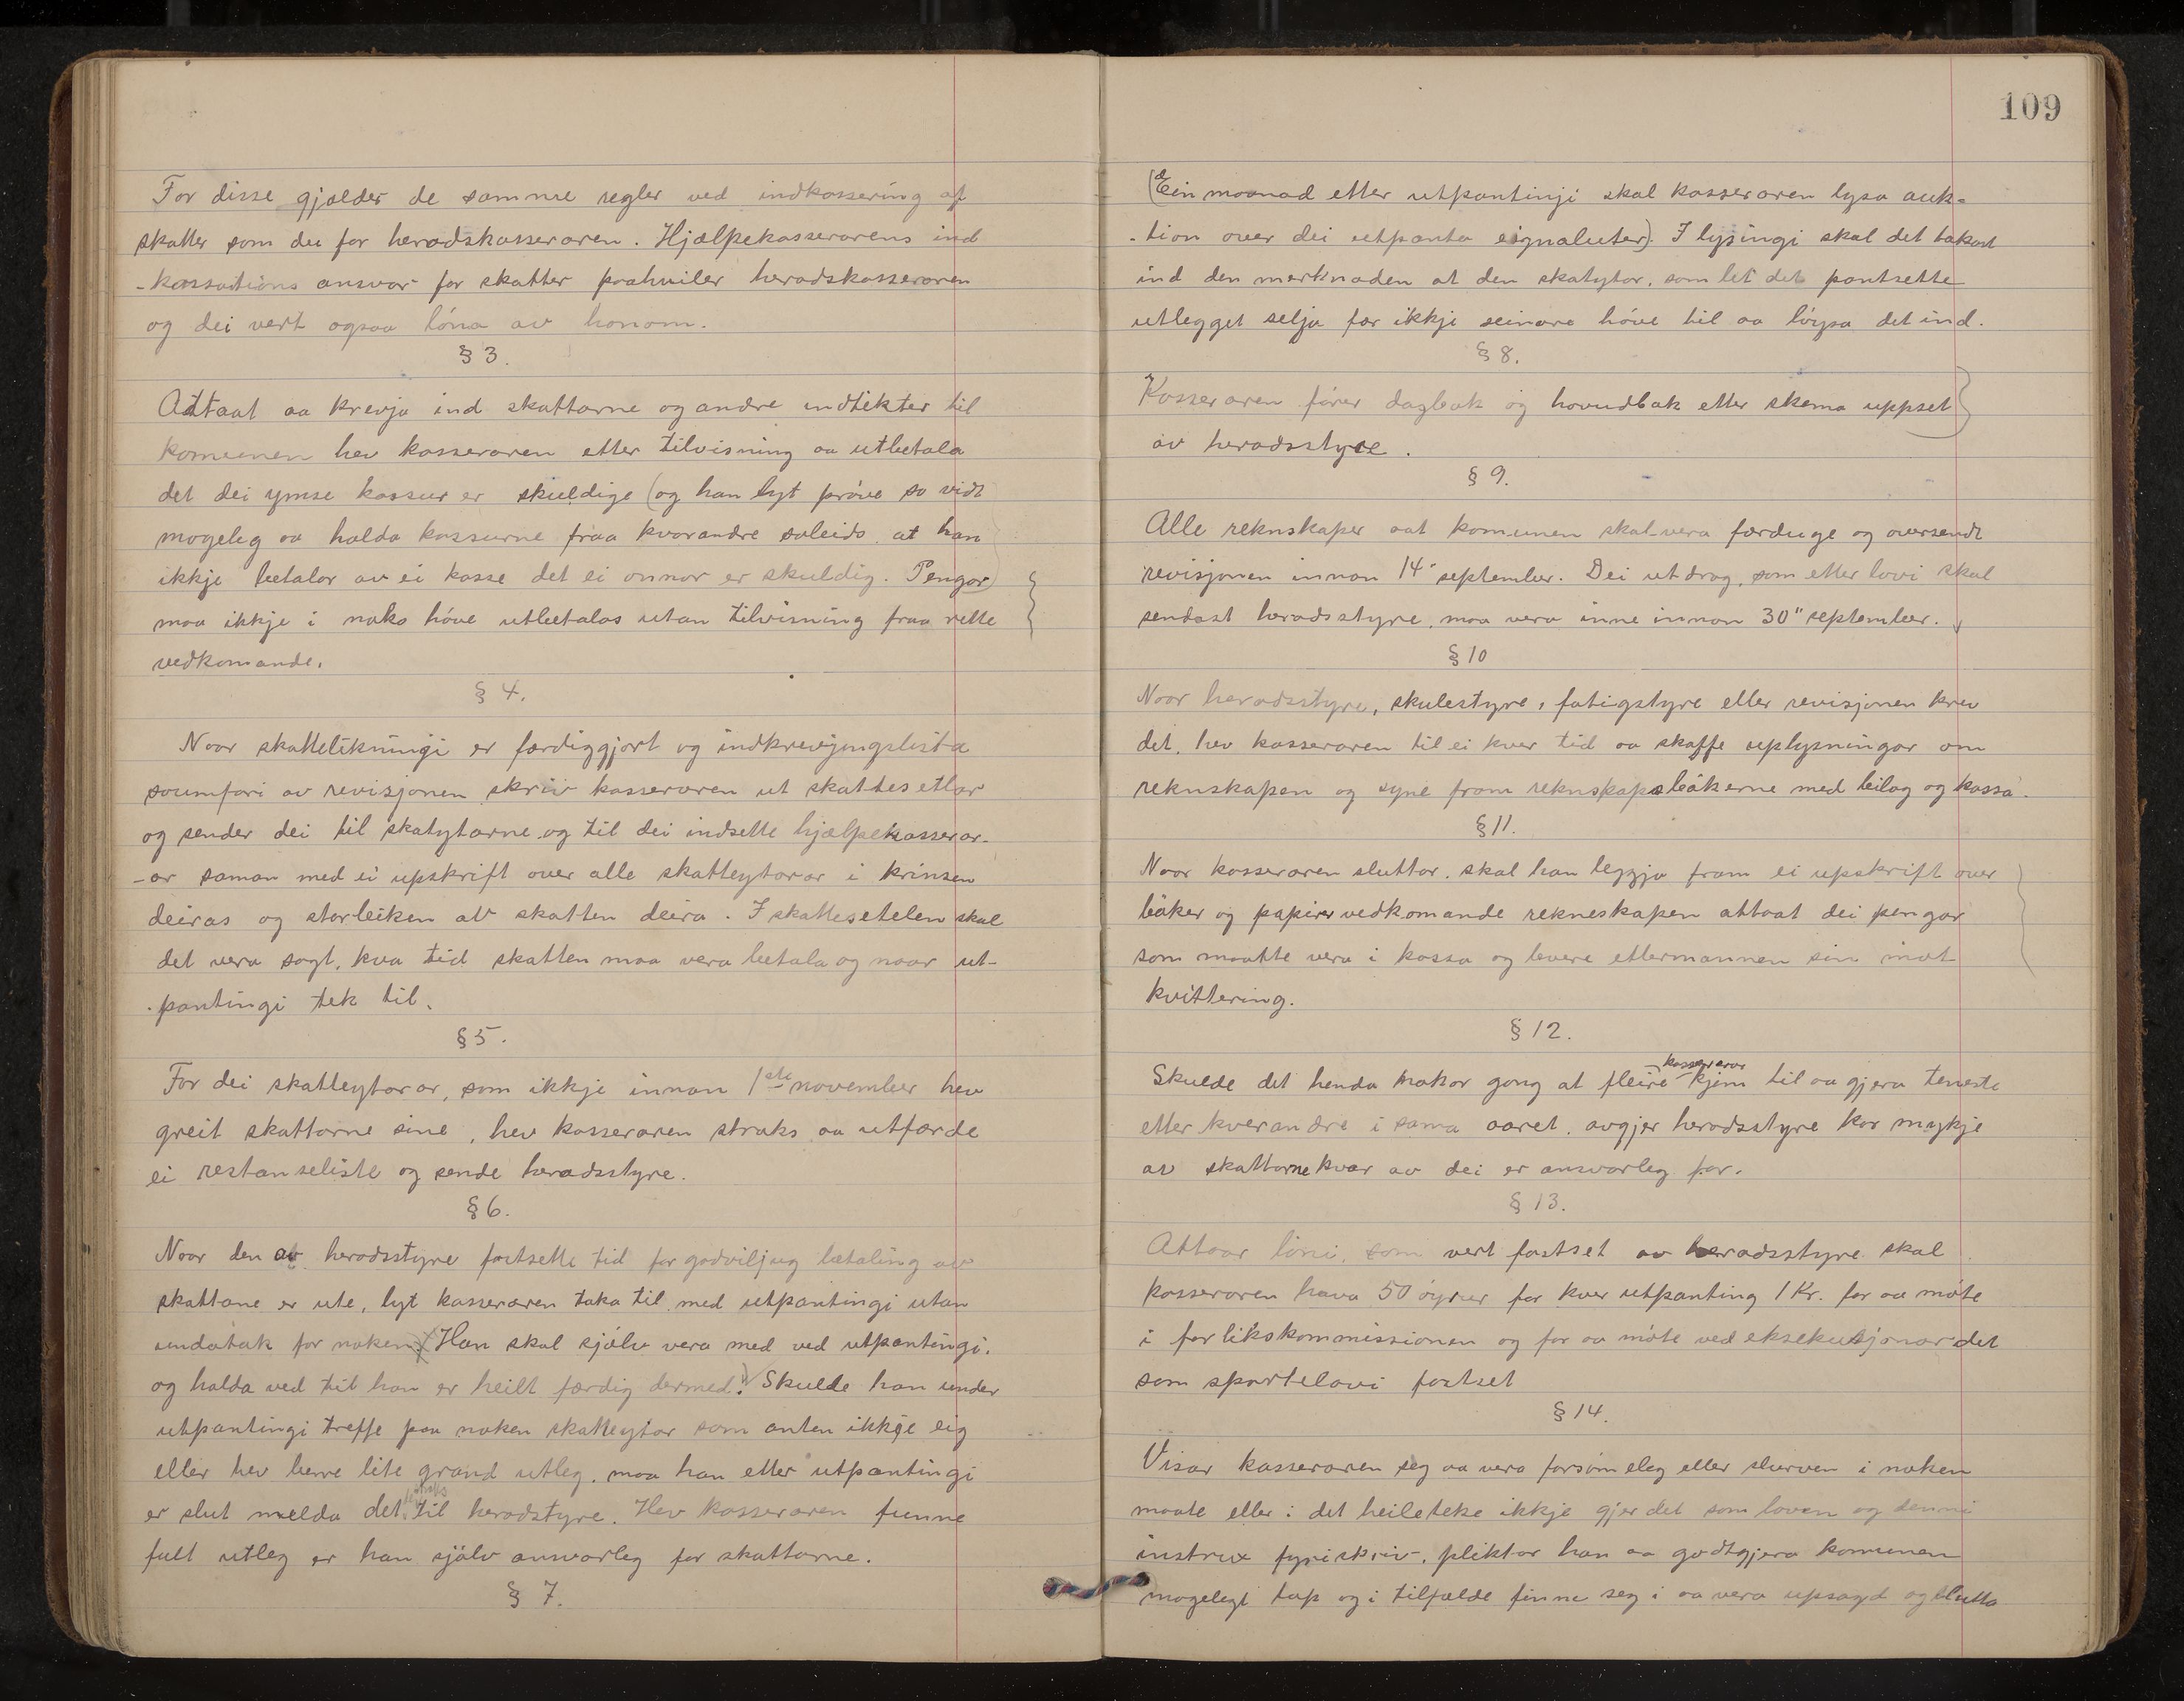 For disse gjælder de samme regler ved indkassering af
skatter som der for heradskasseraren. Hjælpekasserarens ind
-kassations ansvar for skatter paahviler heradskasseraren
og dei vert ogsaa løna av honom.
§ 3.
Attaat aa krevja ind skattarne og andre indtekter til
komunen hev kasseraren etter tilvisning aa utbetala
det dei ymse kassur er skuldige (og han lyt prøve so vidt
mogeleg aa halda kassurne fraa kvarandre soleids at han
ikkje betalar av ei kasse det ei onnor er skuldig. Pengar)
maa ikkje i noko høve utbetalas utan tilvisning fraa rette
vedkomande.
§ 4.
Naar skattelikningi er færdiggjort og indkrevjingslista
soumfari av revisjonen skriv kasseraren ut skattesetlar
og sender dei til skatytarne og til dei indsette hjælpekasserar-
-ar saman med ei upskrift over alle skatteytarar i krinsen
deiras og storleiken av skatten deira. I skattesetelen skal
det vera sagt, kva tid skatten maa vera betala og naar ut-
pantingi tek til.
§ 5.
For dei skatteytarar, som ikkje innan 1ste november hev
greit skattarne sine, hev kasseraren straks aa utfærde
ei restanseliste og sende heradsstyre.
§ 6.
Naar den av heradsstyre fastsette tid for godviljug betaling av
skattane er ute, lyt kasseraren taka til med utpantingi utan
undatak for noken. Han skal sjølv vera med ved utpantingi.
og halda ved til han er heilt færdig dermed. Skulde han under
utpantingi treffe paa noken skatteytar som anten ikkje eig
eller hev berre lite grand utleg. maa han etter utpantingi
er slut melda det straks til heradstyre. Hev kasseraren funne
fult utleg er han sjølv ansvarleg for skattarne.
§ 7.
109
(Ein maanad etter utpantingi skal kasseraren lysa auk-
-tion over dei utpanta eignaluter). I lysingi skal det takast
ind den merknaden at den skatytar, som let det pantsette
utlegget selja fær ikkje seinare høve til aa løysa det ind.
§ 8.
Kasseraren fører dagbok og hovudbok etter skema uppset
av heradsstyre.
§ 9.
Alle reknskaper aat komunen skal vera færduge og oversendt
revisjonen innan 14" september. Dei utdrag, som etter lovi skal
sendast heradsstyre, maa vera inne innan 30" september.
§ 10
Naar heradsstyre, skulestyre, fatigstyre eller revisjonen krev
det, hev kasseraren til ei kver tid aa skaffe uplysningar om
reknskapen og syne fram reknskapsbøkerne med bilag og kassa.
§ 11.
Naar kasseraren sluttar, skal han leggja fram ei upskrift over
bøker og papirer vedkomande rekneskapen attaat dei pengar
som maatte vera i kassa og levere ettermannen sin mot
kvittering.
§ 12.
Skulde det henda nokor gong at fleire kasserarar kjem til aa gjera teneste
etter kverandre i sama aaret, avgjer heradsstyre kor mykje
av skattarne kvar av dei er ansvarleg for.
§ 13.
Attaar løni, som vert fastset av heradsstyre skal
kasseraren hava 50 øyrer for kver utpanting 1 Kr. for aa møte
i forlikskommissionen og for aa møte ved eksekusjonar det
som sportelovi fastset
§ 14.
Visar kasseraren seg aa vera forsømeleg eller slurven i noken
maate eller i det heileteke ikkje gjer det som loven og denni
instrux fyriskriv, pliktar han aa godtgjera komunen
mogelegt tap og i tilfælde finne seg i aa vera upsagd og slutta